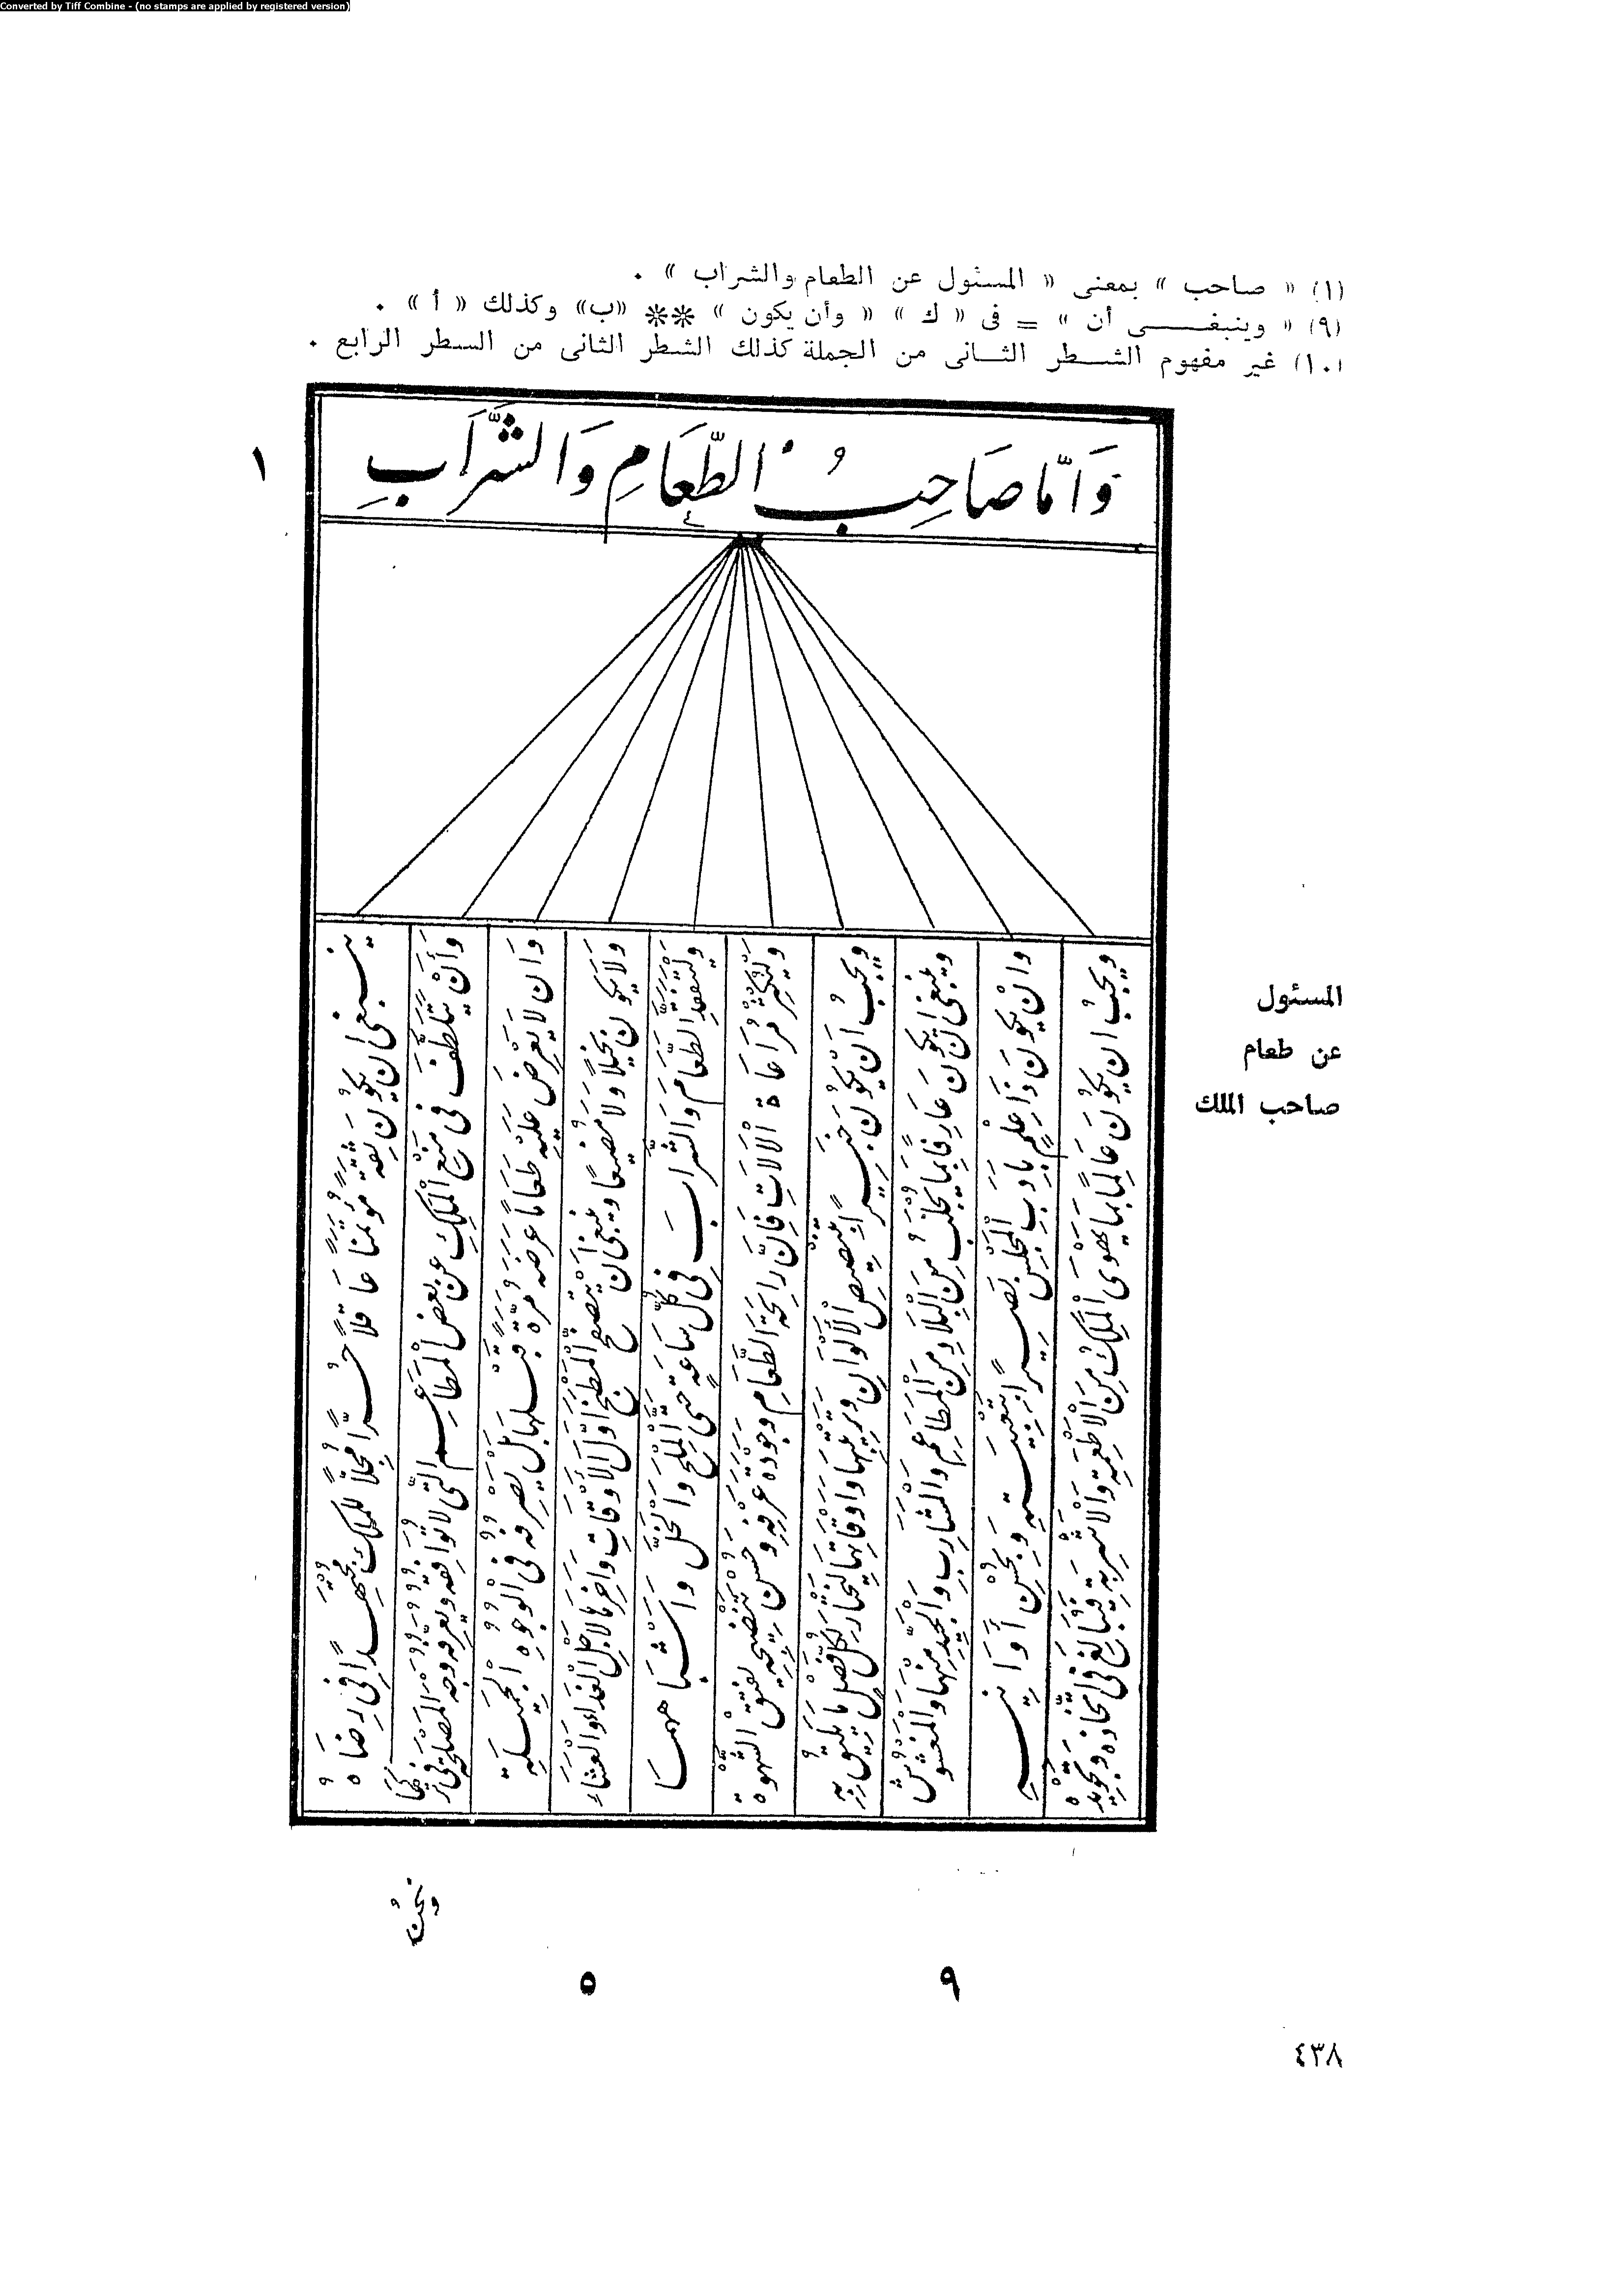 Converted by Tiff Combine - (no stamps are applied by registered version)
(١) « صاحب » بمعنى « المسئول عن الطعام والشراب » .
(٩) « وينبغى أن » = فى « ك » « وأن يكون » ** «ب» وكذلك « أ » .
(١٠) غير مفهوم الشطر الثانى من الجملة كذلك الشطر الثانى من السطر الرابع .
وَاَمَّا صَاحِبُ الطَّعَامِ وَالشَّرَابِ
١
٤
المسئول
عن طعام
صاحب الملك
ويجبُ ان يكُونَ عَالِمًا بمَا يَهْوَى الْمَلِكُ مِنَ الْاَطْعِمَةِ وَالْاَشْرِبَةِ فَيُبَالِغَ فى اتّخاذه وتجويده
وانْ يكونَ ذَا عِلْمٍ بِاَدَبِ الْمَجْلِسِ بَصِيرًا بِتَعْبِيَتِهِ وَبِحُسْنِ أَوَانِيهِ
وينبغى ان يكونَ عَارِفًا بِمَا يُجْلَبُ مِنَ الْبِلَادِ مِنَ الْمَطَاعِمِ والمَشَارِبِ والْجَيِّدِ مِنْها والْمَغْشُوشِ
ويجبُ اَنْ يكُونَ خَبِيرًا الْأَلْوَانِ وترتيبها واوقاتها ليختار لكل فصْلٍ ما يليق به
وَلْيُكْثِرْ مُرَاعَاةَ الْآلَاتِ فَاِنَّ رَائِحَةَ الطَّعَامِ وجَوْدَة غَرْفِهِ وحُسْنَ تَنْضِيجِهِ يفتق الشَّهْوَة
وليتفقدِ الطَّعَامَ وَالشَّرَابَ فى كُلِّ سَاعَةٍ حَتَّى الْمِلْحَ وَالْخَلَّ وَاشْبَاهَهُمَا
ولا يَكُون بَخِيلًا ولا مُضَيِّعًا وينبغى ان يَتَصَفَّحَ المَطْبَخَ اوّلَ الْأَوْقَاتِ واخرها لاجْلِ الْغَدَاءِ والعَشَاءِ
وَان لا يَعْرِضَ عَلَيْهِ طَعَامًا عَرَضَهُ مَرَّةً قَبْلَهَا بَلْ يَصْرِفُهُ فى الوُجُوهِ الْجَمِيلَةِ
وَأَنْ يَتَلَطَّفَ فى مَنْعِ الْمَلِكِ عَنْ بَعْضِ الْمَطَاعِمِ الَّتِى لا تُوَافِقُهُ ويُعَرِّفُهُ وَجْهَ المَصْلَحَةِ فى تركها
ينبغى ان يكُونَ ثِقَةً مُؤْتَمَنًا عَاقِلًا حُرًّا مُجِلًّا لِلْمَلِكِ مُجْتَهِدًا فى رِضَاهُ
٥
٩
٤٣٨